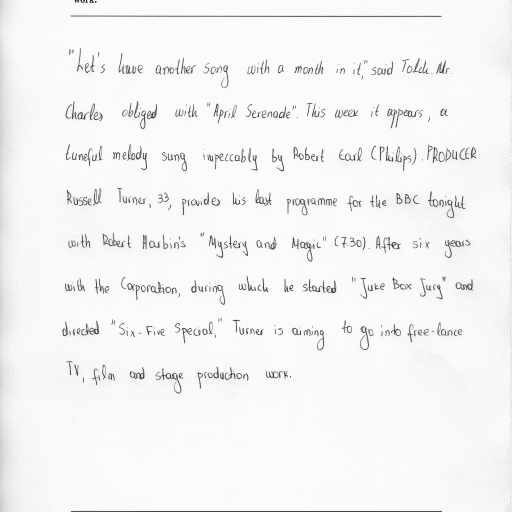 work.
"Let's have another song with a month in it," said Tolch. Mr.
Charles obliged with "April Serenade". This week it appears, a
tuneful melody sung impeccably by Robert Earl (Philips). PRODUCER
Russell Turner, 33, provides his last programme for the BBC tonight
with Robert Harbin's "Mystery and Magic" (7.30). After six years
with the Corporation, during which he started "Juke Box Jury" and
directed "Six-Five Special," Turner is aiming to go into free-lance
TV, film and stage production work.